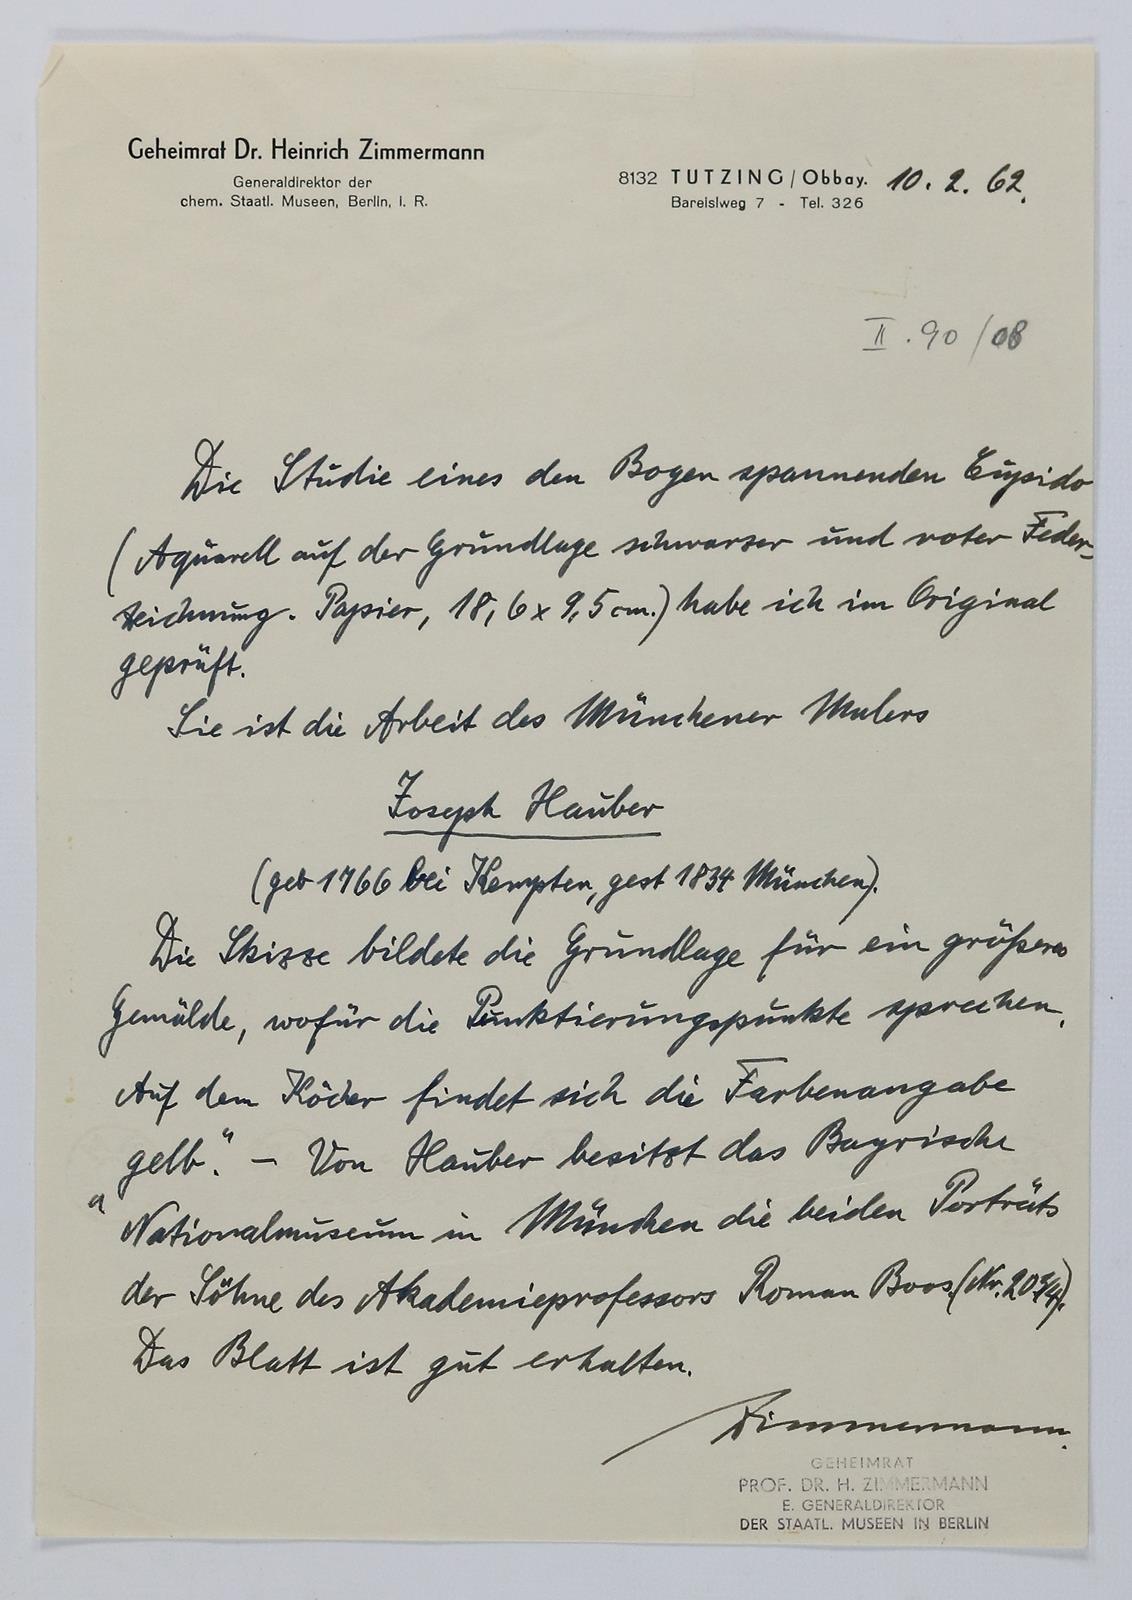 Geheimrat Dr. Heinrich Zimmermann
Generaldirektor der
chem. Staatl. Museen, Berlin, I. R.
8132 TUTZING / Obbay. 10. 2. 62.
Bareislweg 7 - Tel. 326
II. 90/08
Die Studie eines den Bogen spannenden Cupido
(Aquarell auf der Grundlage schwarzer und roter Feder-
zeichnung. Papier, 18,6 x 9,5 cm.) habe ich im Original
geprüft.
Sie ist die Arbeit des Münchener Malers
Joseph Hauber
(geb 1766 bei Kempten, gest 1834 München).
Die Skizze bildete die Grundlage für ein größeres
Gemälde, wofür die Punktierungspunkte sprechen.
Auf dem Köcher findet sich die Farbenangabe
"gelb". – Von Hauber besitzt das Bayrische
Nationalmuseum in München die beiden Porträts
der Söhne des Akademieprofessors Roman Boos. (Nr.
Das Blatt ist gut erhalten.
Zimmermann.
GEHEIMRAT
PROF. DR. H. ZIMMERMANN
E. GENERALDIREKTOR
DER STAATL. MUSEEN IN BERLIN